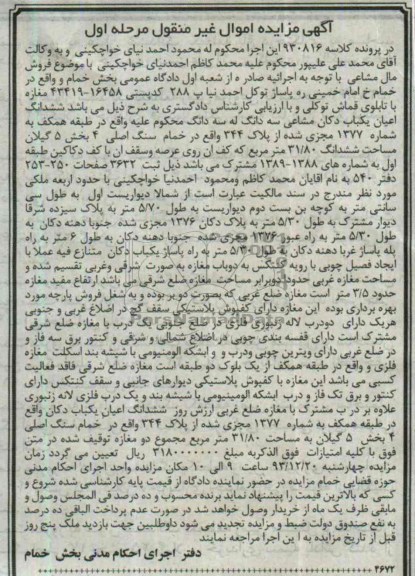 آگهی مزایده اموال غیر منقول مرحله اول
در پرونده کلاسه ۹۳۰۸۱۶ این اجرا محکوم له محمود احمد نیای خواچکینی و به وکالت
آقای محمد علی علیپور محکوم علیه محمد کاظم احمدنیای خواچکینی با موضوع فروش
مال مشاعی با توجه به اجرائیه صادره از شعبه اول دادگاه عمومی بخش خمام و واقع در
خمام خ امام خمینی ره پاساژ توکل احمد نیا پ ۲۸۸ کدپستی ۱۶۴۵۸-۴۳۴۱۹ مغازه
با تابلوی قماش توکلی و با ارزیابی کارشناس دادگستری به شرح ذیل می باشد ششدانگ
اعیان یکباب دکان مشاعی سه دانگ له سه دانگ محکوم علیه واقع در طبقه همکف به
شماره ۱۳۷۷ مجزی شده از پلاک ۳۴۴ واقع در خمام سنگ اصلی ۴ بخش ۵ گیلان
مساحت ششدانگ ۳۱/۸۰ متر مربع که کف آن روی عرصه وسقف آن با کف دکاکین طبقه
اول به شماره های ۱۳۸۸-۱۳۸۹ مشترک می باشد ذیل ثبت ۳۶۳۲ صفحات ۲۵۰-۲۵۳
دفتر ۵۴۰ به نام آقایان محمد کاظم ومحمود احمدنیا خواچکینی با حدود اربعه ملکی
مورد نظر مندرج در سند مالکیت عبارت است از شمالا دیواریست اول به طول سی
سانتی متر به کوچه بن بست دوم دیواریست به طول ۵/۷۰ متر به پلاک سیزده شرقا
دیوار مشترک به طول ۵/۳۰ متر به پلاک دکان ۱۳۷۶ مجزی شده جنوبا دهنه دکان به
طول ۵/۳۰ متر به راه عبور ۱۳۷۶ مجزی شده جنوبا دهنه دکان به طول ۶ متر به راه
پله پاساژ غربا دهنه دکان به طول ۵/۳۰ متر به راه پاساژ یکباب دکان متنازع فیه عملا با
ایجاد فصیل چوبی با رویه کنتکس به دوباب مغازه به صورت شرقی وغربی تقسیم شده و
مساحت مغازه غربی حدود دوبرابر مساحت مغازه ضلع شرقی می باشد ارتفاع مفید مغازه
حدود ۳/۵ متر است مغازه ضلع غربی که بصورت کوپر بوده و به شغل فروش پارچه مورد
بهره برداری بوده این مغازه دارای کفپوش پلاستیکی سقف گچ در اضلاع غربی و جنوبی
هریک دارای دودرب لاله زنبوری فلزی در ضلع جنوبی یک درب با مغازه ضلع شرقی
مشترک است دارای قفسه بندی چوبی در اضلاع شمالی و شرقی و کنتور برق سه فاز و
در ضلع غربی دارای ویترین چوبی ودرب و و ابشکه الومنیومی با شیشه بند اسکلت مغازه
فلزی و واقع در طبقه همکف از یک بلوک دو طبقه است مغازه ضلع شرقی فاقد فعالیت
کسبی می باشد این مغازه با کفپوش پلاستیکی دیوارهای جانبی و سقف کنتکس دارای
کنتور و برق تک فاز و درب ابشکه الومینیومی با شیشه بند و یک درب فلزی لانه زنبوری
علاوه بر در ب مشترک با مغازه ضلع غربی ارزش روز ششدانگ اعیان یکباب دکان واقع
در طبقه همکف به شماره ۱۳۷۷ مجزی شده از پلاک ۳۴۴ واقع در خمام سنگ اصلی
۴ بخش ۵ گیلان به مساحت ۳۱/۸۰ متر مربع مجموع دو مغازه توقیف شده در متن
فوق با کلیه امتیازات فوق الذکربه مبلغ ریال تعیین می گردد زمان
مزایده چهارشنبه ۹۳/۱۲/۲۰ ساعت ۹ الی ۱۰ مکان مزایده واحد اجرای احکام مدنی
حوزه قضایی خمام مزایده در حضور نماینده دادگاه از قیمت پایه کارشناسی شده شروع و
کسی که بالاترین قیمت را پیشنهاد نماید برنده محسوب و ده درصد فی المجلس وصول و
مابقی ظرف یک ماه از خریدار وصول خواهد شد در صورت عدم پرداخت الباقی ده درصد
به نفع صندوق دولت ضبط و مزایده تجدید می شود داوطلبین جهت بازدید ملک پنج روز
قبل از تاریخ مزایده به این اجرا مراجعه نمایند
دفتر اجرای احکام مدنی بخش خمام
۴۶۷۲